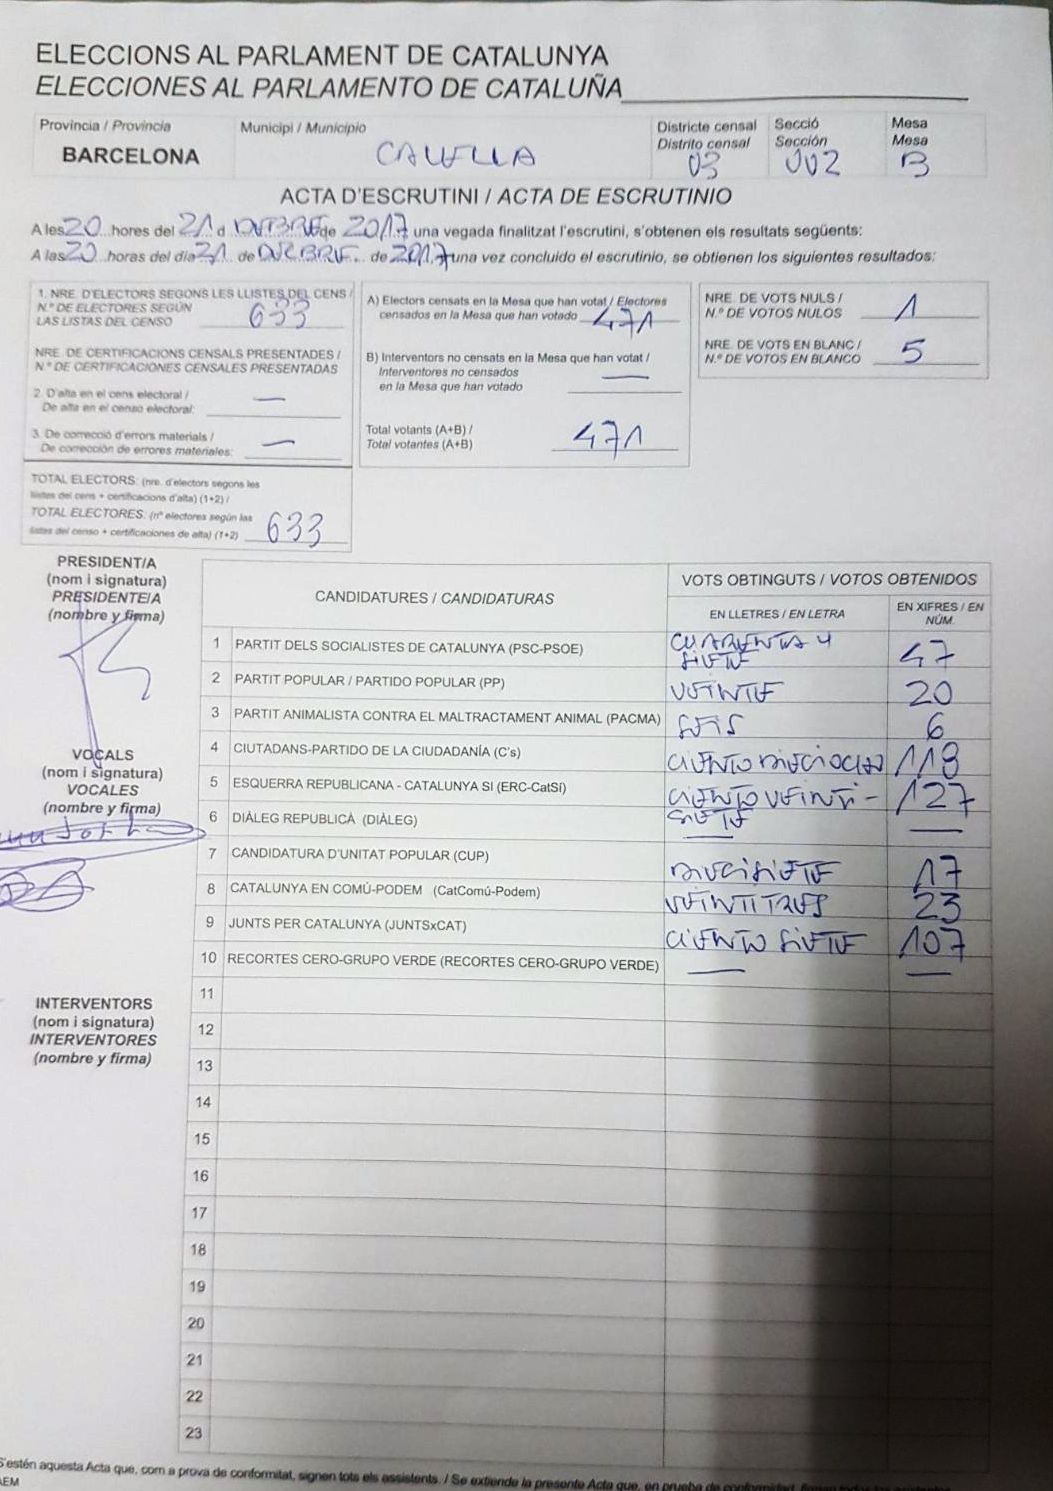 ELECCIONS AL PARLAMENT DE CATALUNYA
ELECCIONES AL PARLAMENTO DE CATALUÑA
Província / Provincia
BARCELONA
Municipi / Municipio
CALELLA
Districte censal
Distrito censal
03
Secció
Sección
002
Mesa
Mesa
B
ACTA D'ESCRUTINI / ACTA DE ESCRUTINIO
A les 20 hores del 21 d de 2017 una vegada finalitzat l'escrutini, s'obtenen els resultats següents:
A las 20 horas del día 21 de de 2017 una vez concluido el escrutinio, se obtienen los siguientes resultados:
1. NRE. D'ELECTORS SEGONS LES LLISTES DEL CENS /
N.º DE ELECTORES SEGÚN
LAS LISTAS DEL CENSO 633
NRE. DE CERTIFICACIONS CENSALS PRESENTADES /
N.º DE CERTIFICACIONES CENSALES PRESENTADAS
2. D'alta en el cens electoral /
De alta en el censo electoral: —
3. De correcció d'errors materials /
De corrección de errores materiales: —
TOTAL ELECTORS: (nre. d'electors segons les
llistes del cens + certificacions d'alta) (1+2) /
TOTAL ELECTORES: (nº electores según las
listas del censo + certificaciones de alta) (1+2) 633
A) Electors censats en la Mesa que han votat / Electores
censados en la Mesa que han votado 471
B) Interventors no censats en la Mesa que han votat /
Interventores no censados
en la Mesa que han votado —
Total votants (A+B) /
Total votantes (A+B) 471
NRE. DE VOTS NULS /
N.º DE VOTOS NULOS 1
NRE. DE VOTS EN BLANC /
N.º DE VOTOS EN BLANCO 5
PRESIDENT/A
(nom i signatura)
PRESIDENTE/A
(nombre y firma)
VOCALS
(nom i signatura)
VOCALES
(nombre y firma)
INTERVENTORS
(nom i signatura)
INTERVENTORES
(nombre y firma)
CANDIDATURES / CANDIDATURAS
VOTS OBTINGUTS / VOTOS OBTENIDOS
EN LLETRES / EN LETRA
EN XIFRES / EN
NÚM.
1 PARTIT DELS SOCIALISTES DE CATALUNYA (PSC-PSOE) CUARENTA Y SIETE 47
2 PARTIT POPULAR / PARTIDO POPULAR (PP) VEINTE 20
3 PARTIT ANIMALISTA CONTRA EL MALTRACTAMENT ANIMAL (PACMA) SEIS 6
4 CIUTADANS-PARTIDO DE LA CIUDADANÍA (C's) CIENTO DIECIOCHO 118
5 ESQUERRA REPUBLICANA - CATALUNYA SI (ERC-CatSí) CIENTO VEINTI- SIETE 127
6 DIÀLEG REPUBLICÀ (DIÀLEG) — —
7 CANDIDATURA D'UNITAT POPULAR (CUP) DIECISIETE 17
8 CATALUNYA EN COMÚ-PODEM (CatComú-Podem) VEINTITRES 23
9 JUNTS PER CATALUNYA (JUNTSxCAT) CIENTO SIETE 107
10 RECORTES CERO-GRUPO VERDE (RECORTES CERO-GRUPO VERDE) — —
11
12
13
14
15
16
17
18
19
20
21
22
23
S'estén aquesta Acta que, com a prova de conformitat, signen tots els assistents. / Se extiende la presente Acta que, en prueba de conformidad, firman todos los
AEM